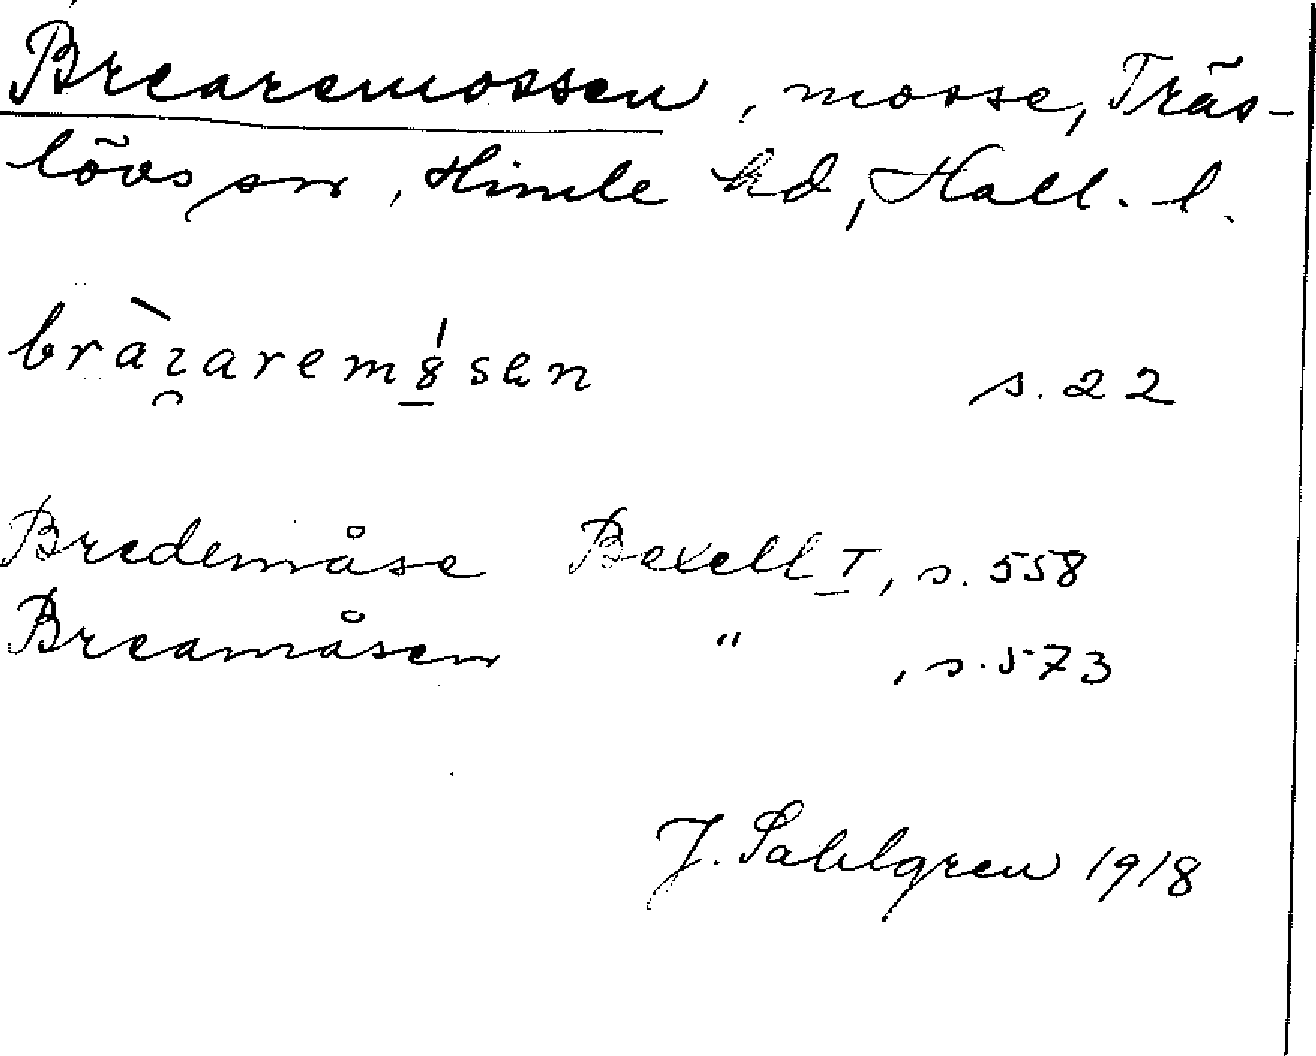 Brearemossen, mosse, Träs-
lövs sn, Himle hd, Hall. l.
s. 22
Bredemåse Bexell I, s. 558
Breamåsen " , s. 573
J. Sahlgren 1918